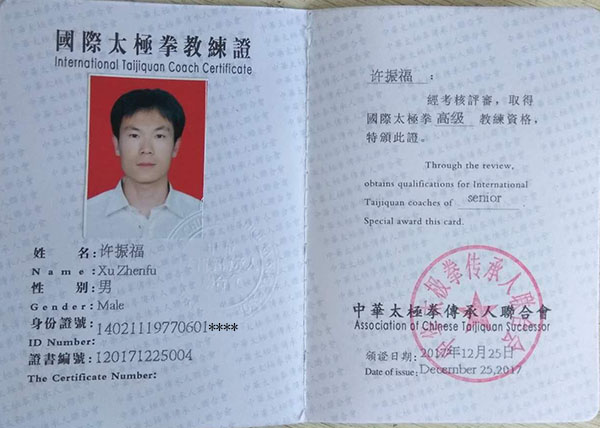 國際太極拳教練證
International Taijiquan Coach Certificate
姓 名:许振福
Name:Xu Zhenfu
性 別:男
Gender:Male
身份證號:14021119770601****
ID Number:
證書編號:120171225004
The Certificate Number:
许振福:
經考核評審,取得
國際太極拳高级教練資格,
特頒此證。
Through the review,
obtains qualifications for International
Taijiquan coaches of senior.
Special award this card.
中華太極拳傳承人聯合會
Association of Chinese Taijiquan Successor
頒證日期:2017年12月25日
Date of issue:December 25,2017